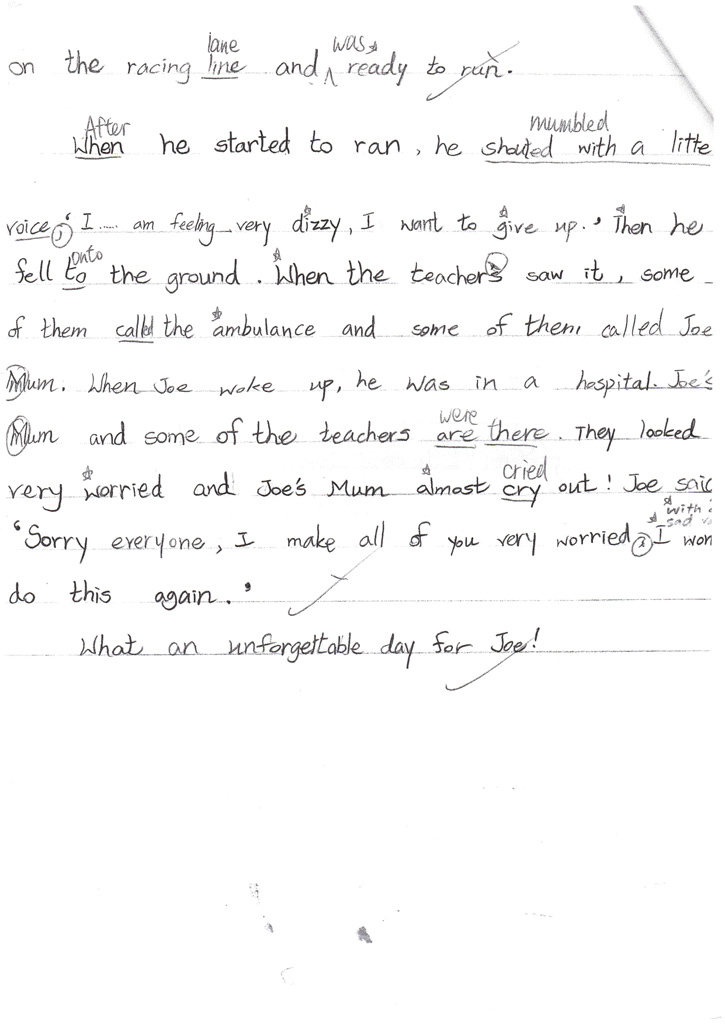 lane was
on the racing line and ^ ready to run.
After mumbled
When he started to ran, he shouted with a litte
voice, 'I.... am feeling very dizzy, I want to give up.' Then he
onto
fell to the ground. When the teachers saw it, some
of them called the ambulance and some of them called Joe
Mum. When Joe woke up, he was in a hospital. Joe's
were
Mum and some of the teachers are there. They looked
cried
very worried and Joe's Mum almost cry out! Joe said
with a
sad
'Sorry everyone, I make all of you very worried. I won
do this again.'
What an unforgettable day for Joe!